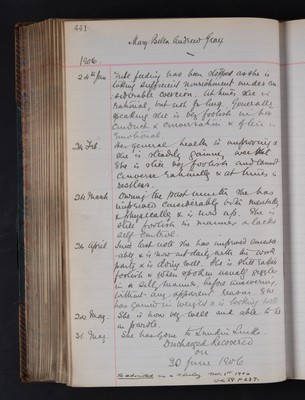 441
Mary Bella Andrew Gray
1906.
24th Jan Tube feeding has been stopped as she is
taking sufficient nourishment under con-
siderable coercion. At times she is
rational, but not for long. Generally
speaking she is very foolish in her
conduct & conversation & often is
emotional.
24 Feb. Her general health is improving &
she is steadily gaining
She is still very foolish and cannot
converse rationally & at times is
restless.
24 March During the past month she has
improved considerably both mentally
& physically & is now up. She is
still foolish in manner & lacks
self control.
24 April Since last note she has improved consid-
ably & is now out daily with the work
party & is doing well. She is still rather
foolish & when spoken usually giggles
in a silly manner before answering,
without any apparent reason. She
has gained in weight & is looking well
24 May. She is now very well and able to be
on parole.
31 May. She has gone to Lundin Links
Discharged Recovered
on
30 June 1906
Re-admitted Novr 1st 1906